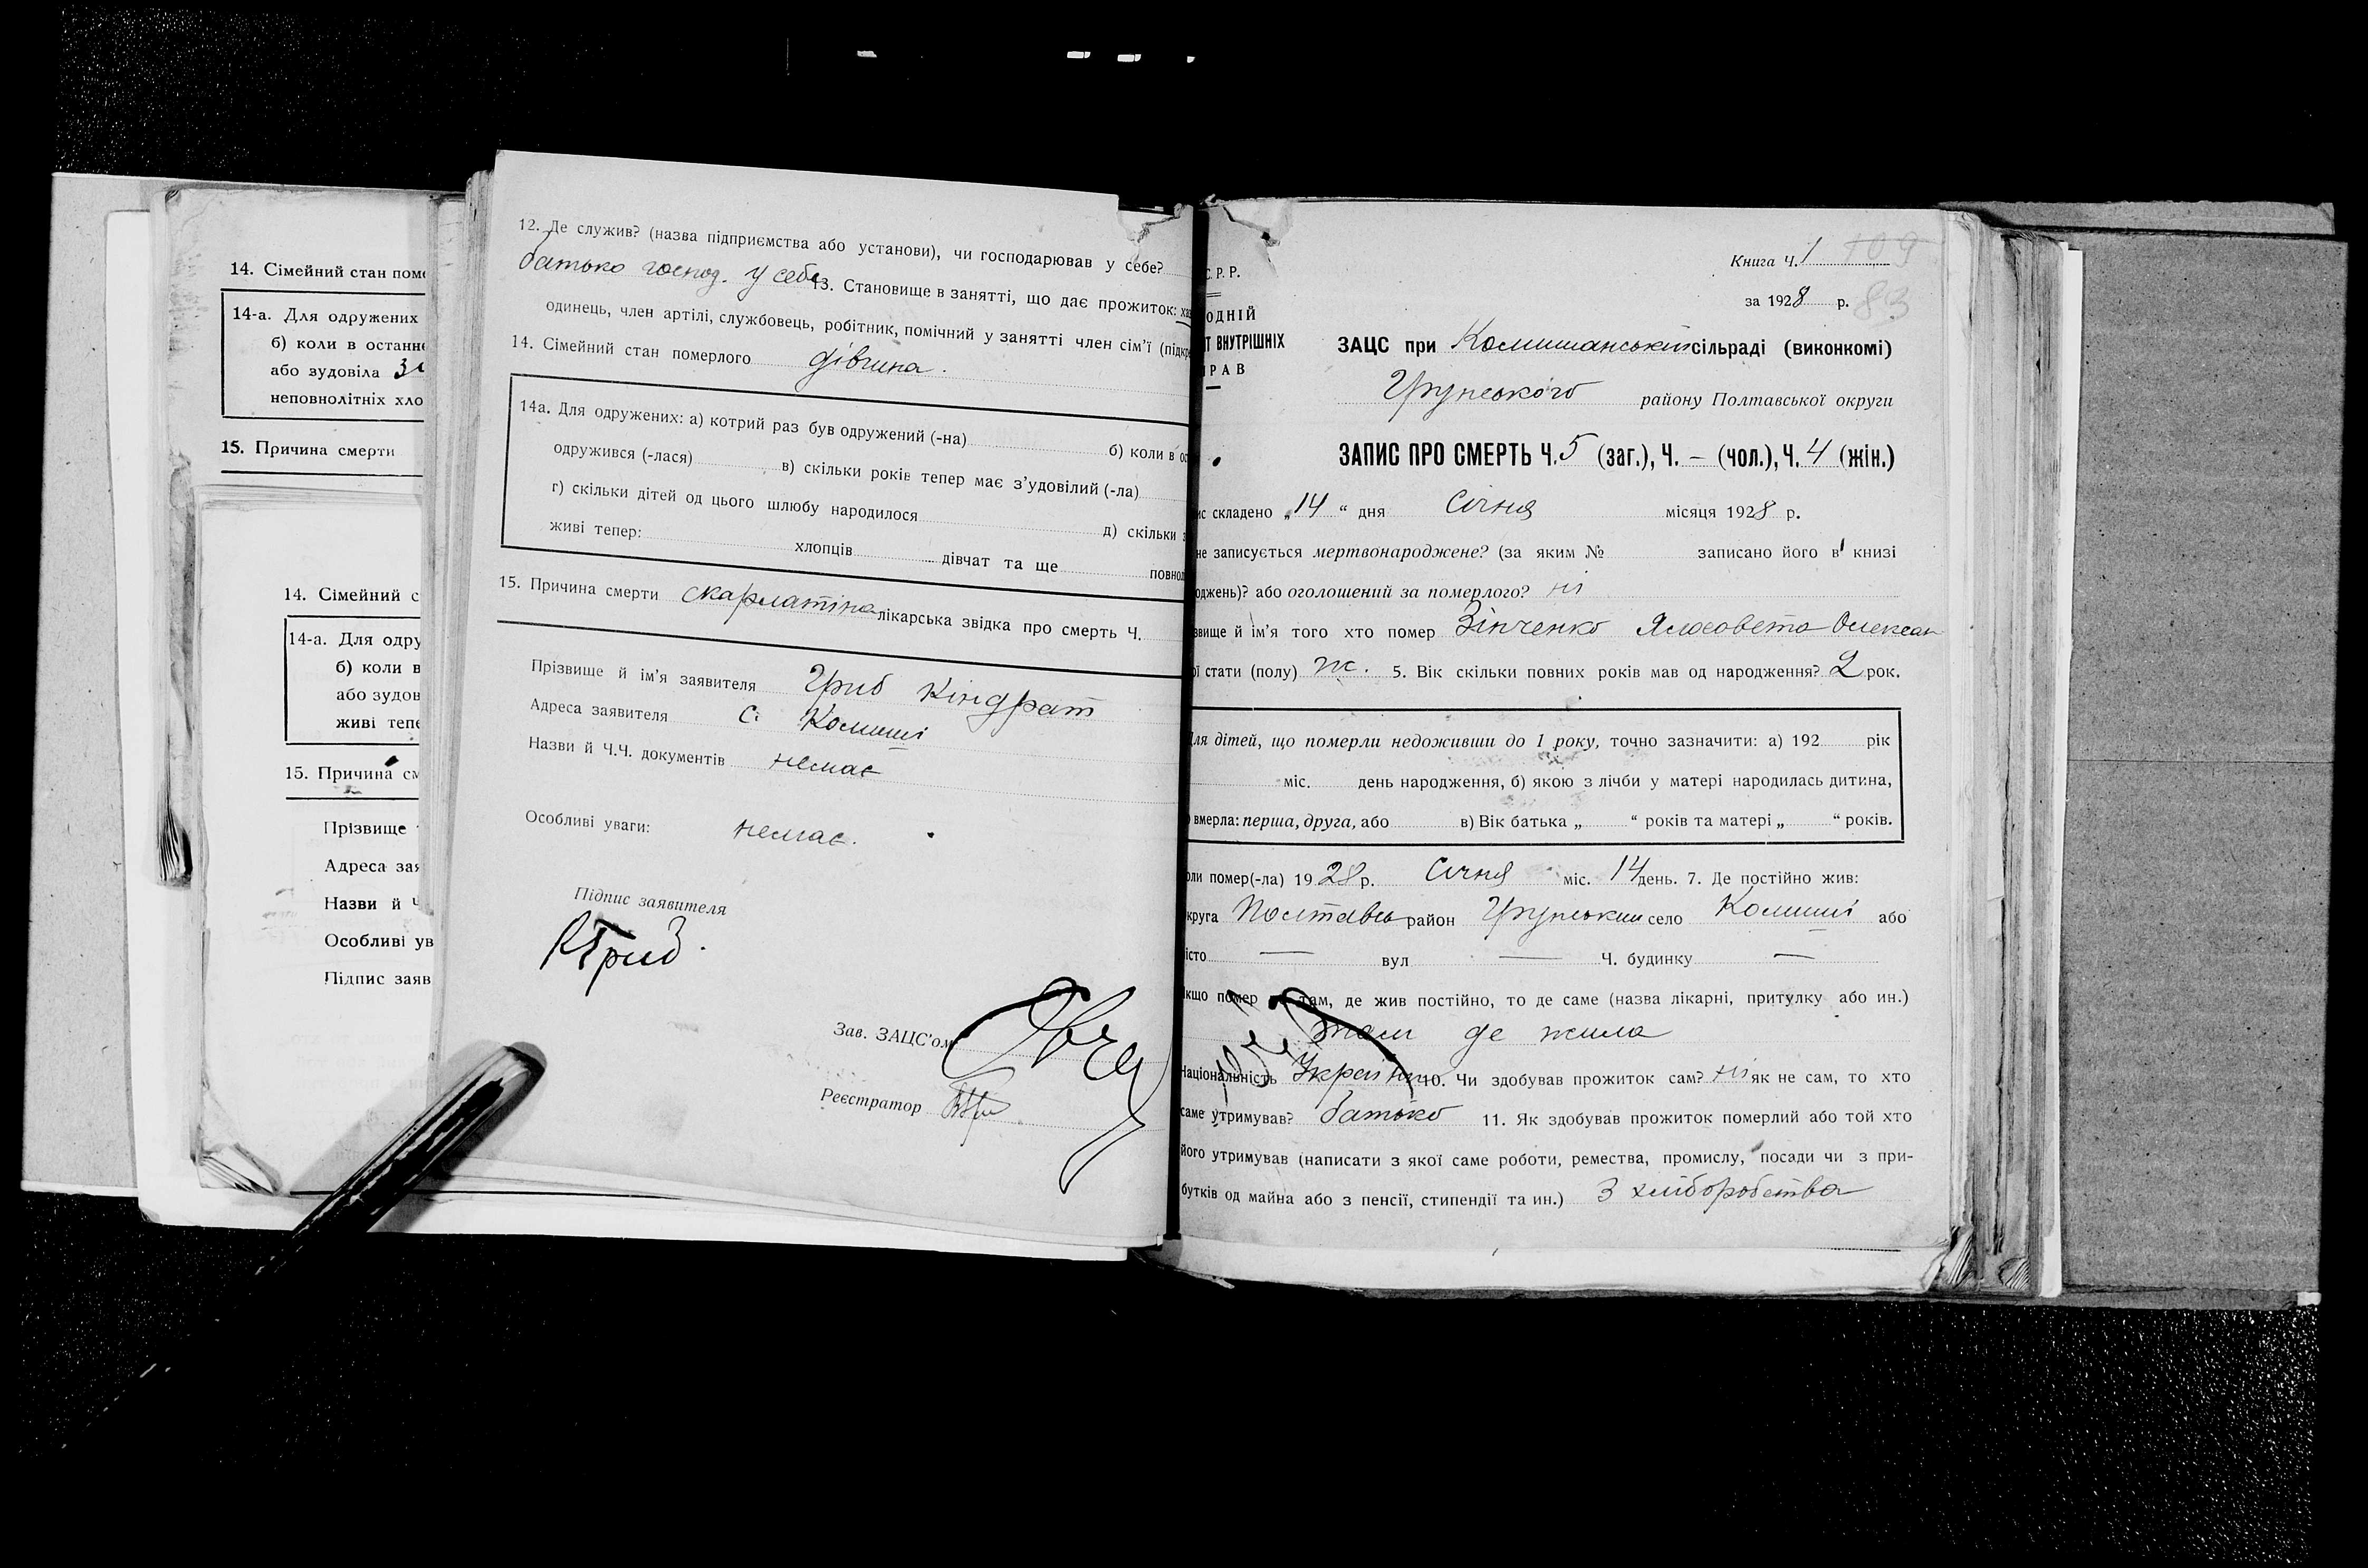 14. Сімейний стан пом
14-а. Для одружених
б) коли в останн
або зудовіла
неповнолітніх хло
15. Причина смерти
14. Сімейний с
14-а. Для одру
б) коли в
або зудов
живі тепе
15. Причина см
Прізвище
Адреса зая
Назви й Ч
Особливі ув
Підпис заяв
12. Де служив? (назва підприємства або установи), чи господарював у себе?
батько господ. у себе 13. Становище в занятті, що дає прожиток:
одинець, член артілі, службовець, робітник, помічний у занятті член сім'ї (підкре
14. Сімейний стан померлого дівчина.
14а. Для одружених: а) котрий раз був одружений (-на) б) коли в ос
одружився (-лася) в) скільки років тепер має з'удовілий (-ла)
г) скільки дітей од цього шлюбу народилося д) скільки з
живі тепер: хлопців дівчат та ще повно
15. Причина смерти скарлатіна лікарська звідка про смерть Ч.
Прізвище й ім'я заявителя Гриб Кіндрат
Адреса заявителя С. Комиші
Назви й Ч.Ч. документів немає
Особливі уваги: немає.
Підпис заявителя
КГриб.
Зав. ЗАЦС'ом
Реєстратор
Книга Ч. 1 109
за 1928 р. 83
С. Р. Р.
ОДНІЙ
Т ВНУТРІШНІХ
РАВ
ЗАЦС при Комишанській сільраді (виконкомі)
Грунського району Полтавської округи
ЗАПИС ПРО СМЕРТЬ Ч. 5 (заг.), Ч. – (чол.), Ч. 4 (жін.)
ис складено „14“ дня Січня місяця 1928 р.
не записується мертвонароджене? (за яким № записано його в 1 книзі
оджень)? або оголошений за померлого? ні
звище й ім'я того хто помер Зінченко Ялосовета Олексан
ої стати (полу) ж. 5. Вік скільки повних років мав од народження? 2 рок.
Для дітей, що померли недоживши до 1 року, точно зазначити: а) 192 рік
міс. день народження, б) якою з лічби у матері народилась дитина,
вмерла: перша, друга, або в) Вік батька „ “ років та матері „ “ років.
оли помер(-ла) 1928 р. Січня міс. 14 день. 7. Де постійно жив:
круга Полтавсь район Грунський село Комиші або
істо — вул — Ч. будинку —
кщо помер не там, де жив постійно, то де саме (назва лікарні, притулку або ин.)
там де жила
Національність Україн. 10. Чи здобував прожиток сам? ні як не сам, то хто
саме утримував? батько 11. Як здобував прожиток померлий або той хто
його утримував (написати з якої саме роботи, ремества, промислу, посади чи з при-
бутків од майна або з пенсії, стипендії та ин.) З хліборобства